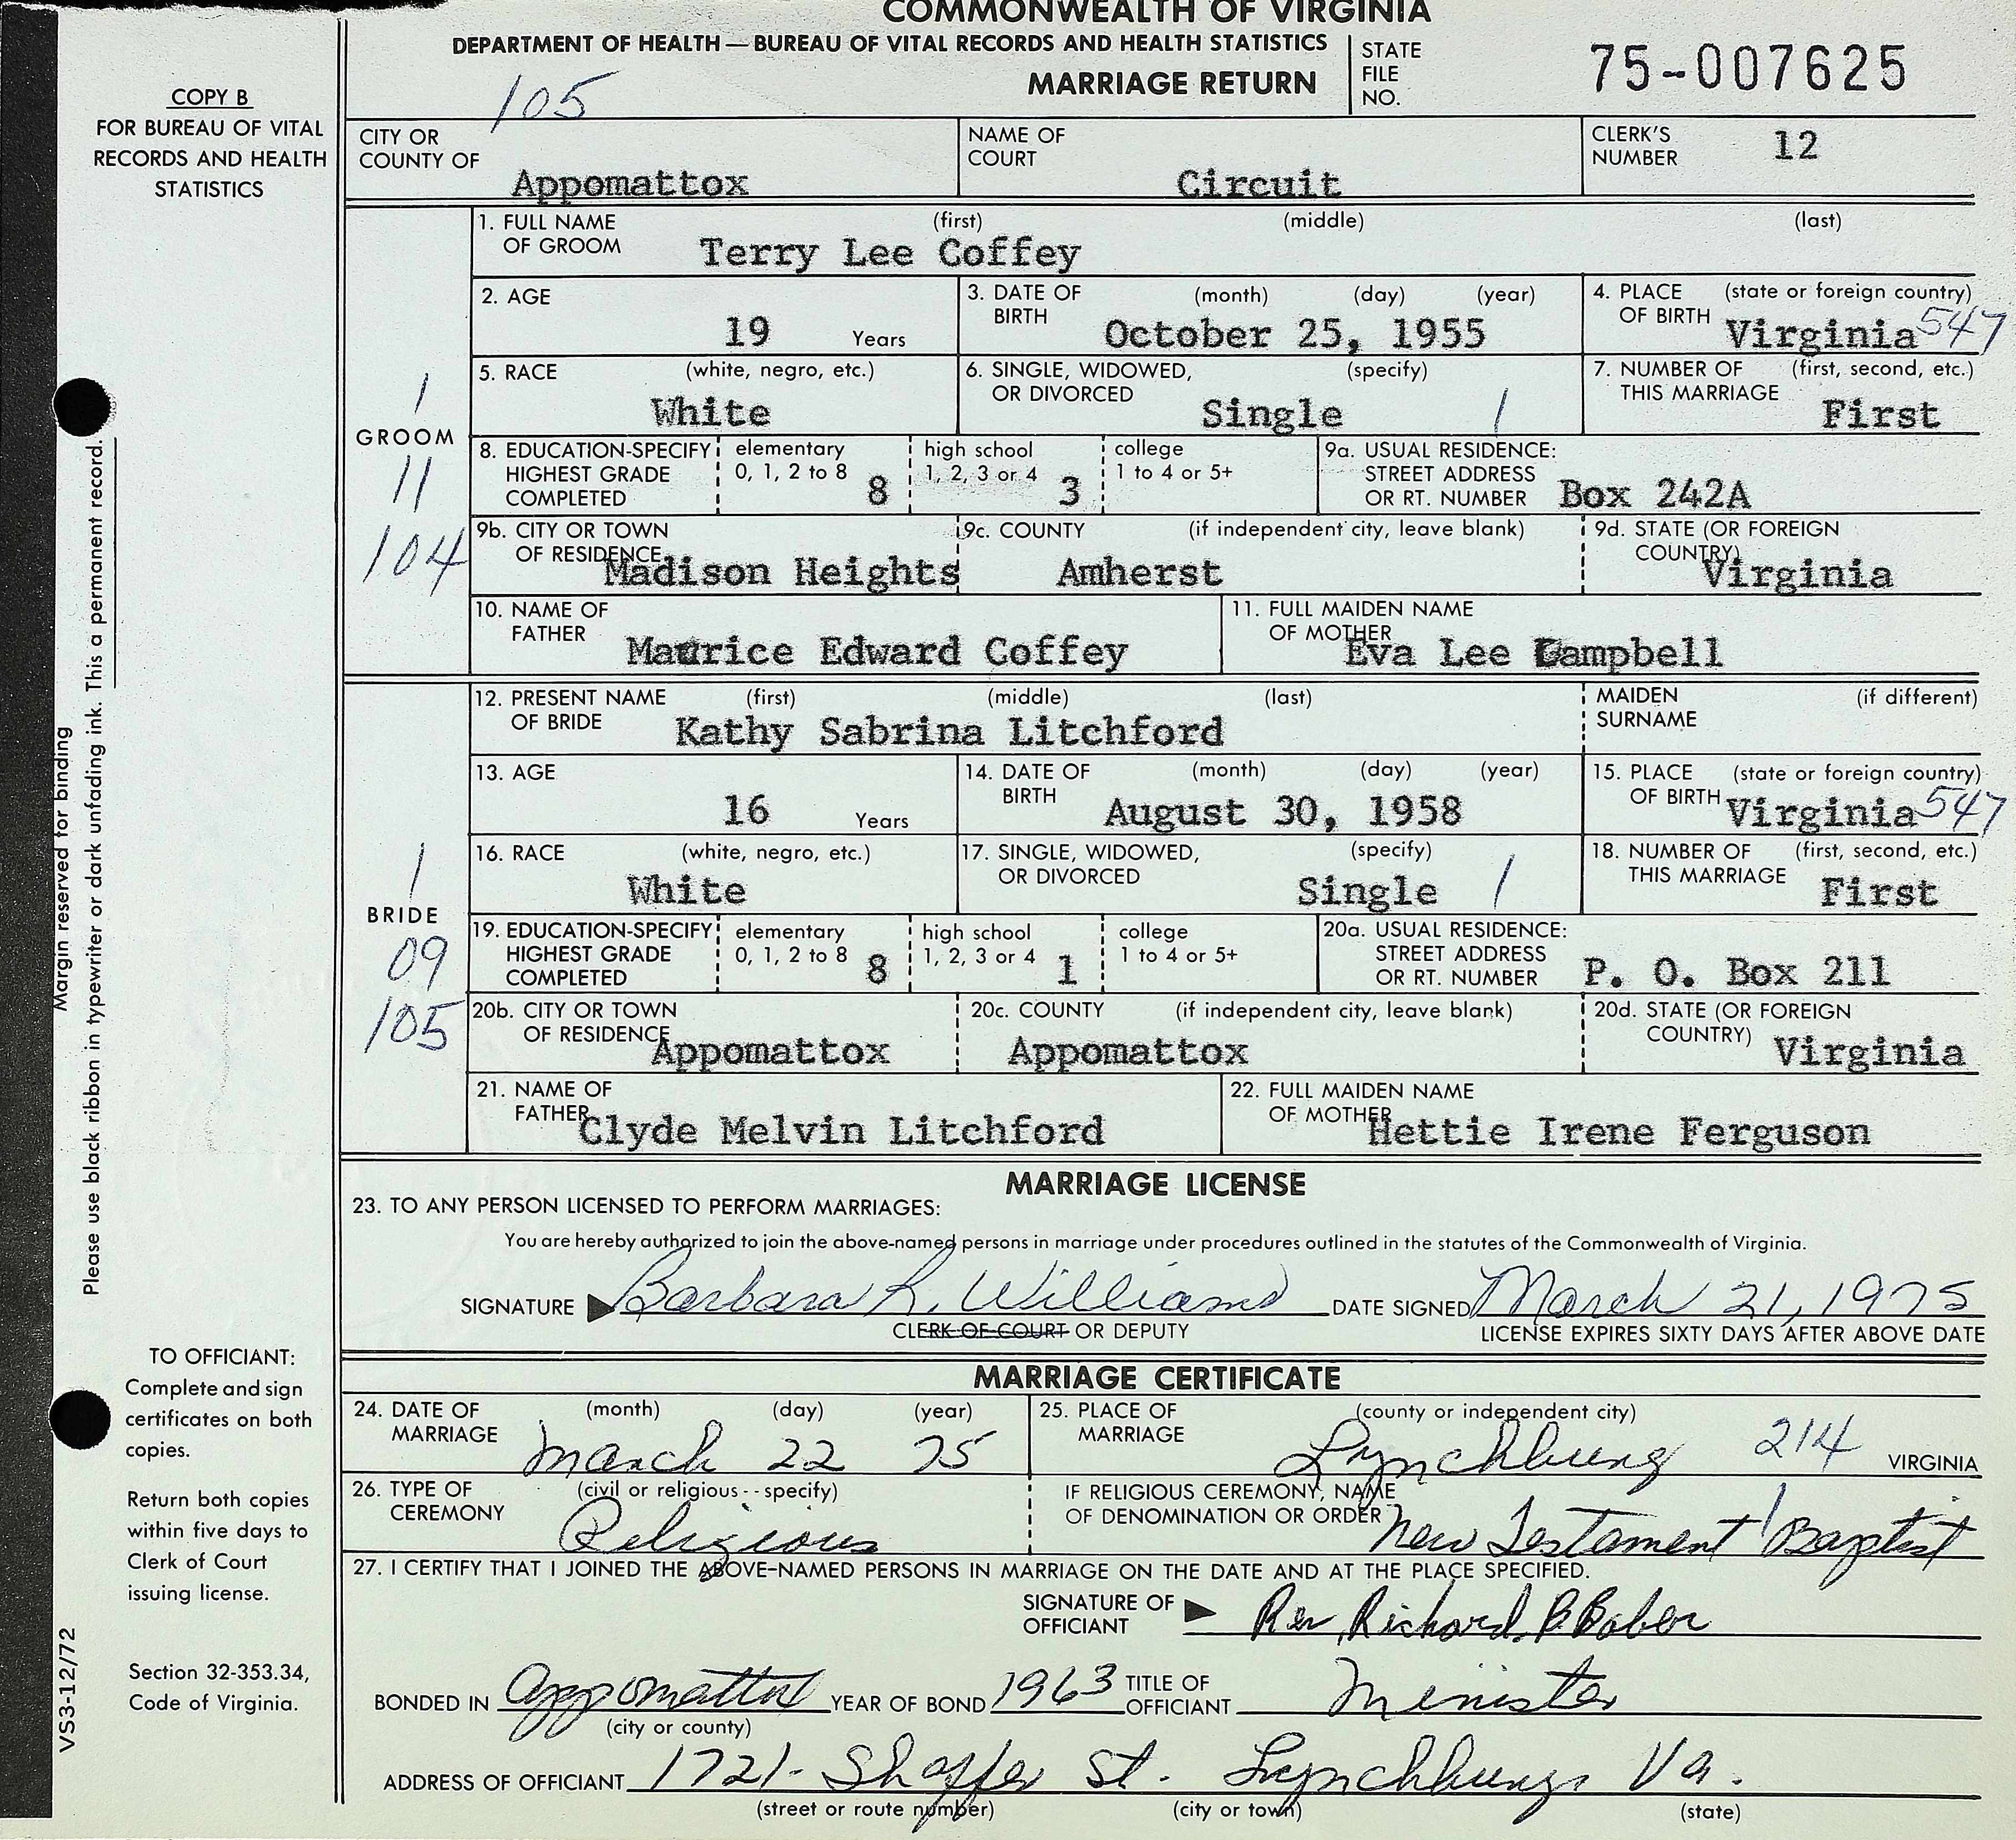 COMMONWEALTH OF VIRGINIA
DEPARTMENT OF HEALTH — BUREAU OF VITAL RECORDS AND HEALTH STATISTICS
MARRIAGE RETURN
STATE FILE NO. 75-007625
105
COPY B
FOR BUREAU OF VITAL
RECORDS AND HEALTH
STATISTICS
CITY OR COUNTY OF Appomattox NAME OF COURT Circuit CLERK'S NUMBER 12
GROOM
1
11
104
1. FULL NAME OF GROOM (first) (middle) (last) Terry Lee Coffey
2. AGE 19 Years 3. DATE OF BIRTH (month) (day) (year) October 25, 1955 4. PLACE OF BIRTH (state or foreign country) Virginia 547
5. RACE (white, negro, etc.) White 6. SINGLE, WIDOWED, OR DIVORCED (specify) Single 1 7. NUMBER OF THIS MARRIAGE (first, second, etc.) First
8. EDUCATION-SPECIFY HIGHEST GRADE COMPLETED elementary 0, 1, 2 to 8 8 high school 1, 2, 3 or 4 3 college 1 to 4 or 5+ 9a. USUAL RESIDENCE: STREET ADDRESS OR RT. NUMBER Box 242A
9b. CITY OR TOWN OF RESIDENCE Madison Heights 9c. COUNTY (if independent city, leave blank) Amherst 9d. STATE (OR FOREIGN COUNTRY) Virginia
10. NAME OF FATHER Maurice Edward Coffey 11. FULL MAIDEN NAME OF MOTHER Eva Lee Campbell
BRIDE
1
09
105
12. PRESENT NAME OF BRIDE (first) (middle) (last) Kathy Sabrina Litchford MAIDEN SURNAME (if different)
13. AGE 16 Years 14. DATE OF BIRTH (month) (day) (year) August 30, 1958 15. PLACE OF BIRTH (state or foreign country) Virginia 547
16. RACE (white, negro, etc.) White 17. SINGLE, WIDOWED, OR DIVORCED (specify) Single 1 18. NUMBER OF THIS MARRIAGE (first, second, etc.) First
19. EDUCATION-SPECIFY HIGHEST GRADE COMPLETED elementary 0, 1, 2 to 8 8 high school 1, 2, 3 or 4 1 college 1 to 4 or 5+ 20a. USUAL RESIDENCE: STREET ADDRESS OR RT. NUMBER P. O. Box 211
20b. CITY OR TOWN OF RESIDENCE Appomattox 20c. COUNTY (if independent city, leave blank) Appomattox 20d. STATE (OR FOREIGN COUNTRY) Virginia
21. NAME OF FATHER Clyde Melvin Litchford 22. FULL MAIDEN NAME OF MOTHER Hettie Irene Ferguson
MARRIAGE LICENSE
23. TO ANY PERSON LICENSED TO PERFORM MARRIAGES:
You are hereby authorized to join the above-named persons in marriage under procedures outlined in the statutes of the Commonwealth of Virginia.
SIGNATURE Barbara R. Williams DATE SIGNED March 21, 1975
CLERK OF COURT OR DEPUTY LICENSE EXPIRES SIXTY DAYS AFTER ABOVE DATE
MARRIAGE CERTIFICATE
24. DATE OF MARRIAGE (month) (day) (year) March 22 75 25. PLACE OF MARRIAGE (county or independent city) Lynchburg 214 VIRGINIA
26. TYPE OF CEREMONY (civil or religious -- specify) Religious IF RELIGIOUS CEREMONY, NAME OF DENOMINATION OR ORDER New Testament 1 Baptist
27. I CERTIFY THAT I JOINED THE ABOVE-NAMED PERSONS IN MARRIAGE ON THE DATE AND AT THE PLACE SPECIFIED.
SIGNATURE OF OFFICIANT Rev. Richard B. Baber
BONDED IN Appomattox (city or county) YEAR OF BOND 1963 TITLE OF OFFICIANT Minister
ADDRESS OF OFFICIANT 1721- Shaffer St. Lynchburg Va.
(street or route number) (city or town) (state)
Margin reserved for binding
Please use black ribbon in typewriter or dark unfading ink. This a permanent record.
TO OFFICIANT:
Complete and sign
certificates on both
copies.
Return both copies
within five days to
Clerk of Court
issuing license.
Section 32-353.34,
Code of Virginia.
VS3-12/72